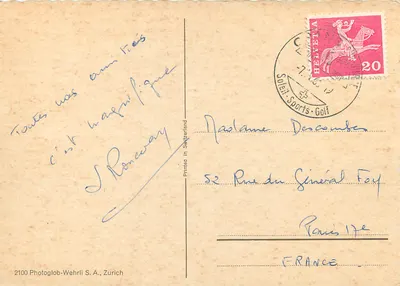 Toutes nos amitiés
c'est magnifique
HELVETIA
20
Soleil-Sports-Golf
Printed in Switzerland
Madame Descombes
52 Rue du Général Foy
Paris 17e
FRANCE
2100 Photoglob-Wehrli S. A., Zurich